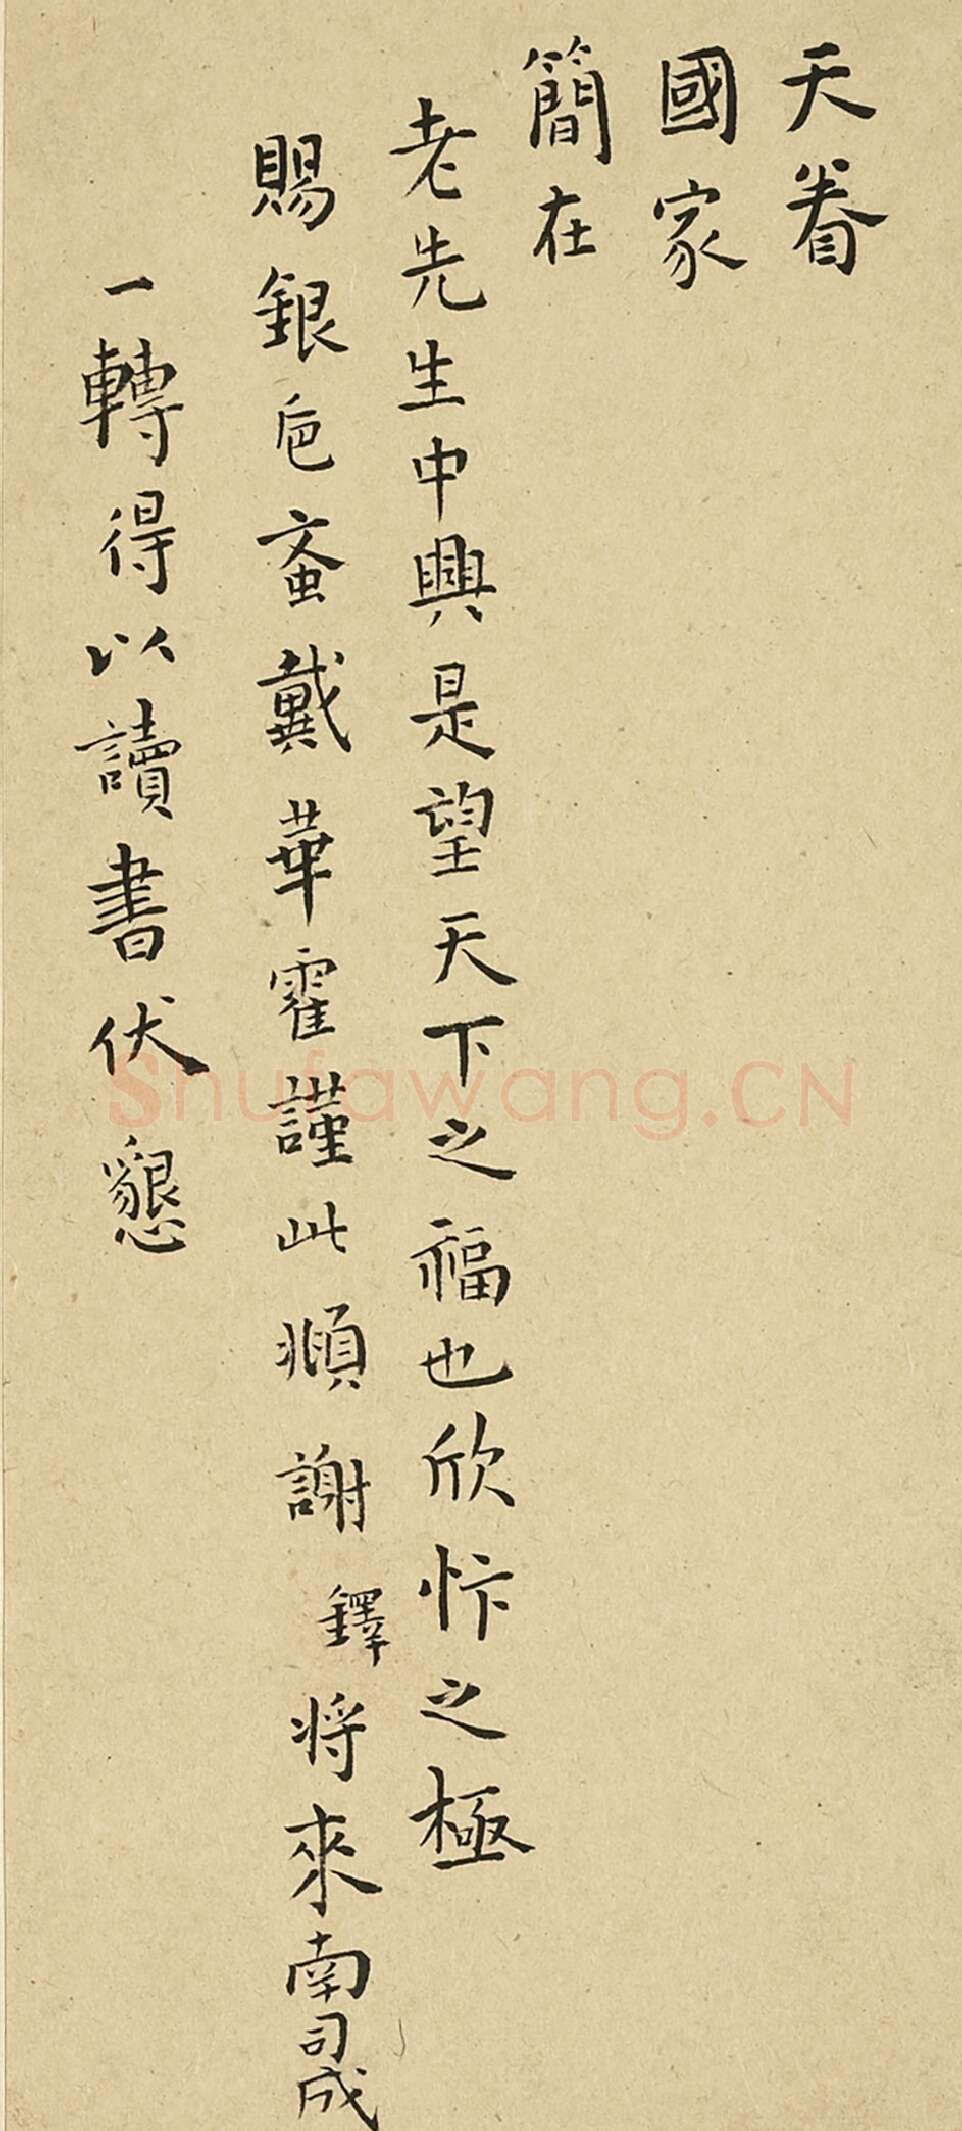 天眷
國家
簡在
老先生中興是望天下之福也欣忭之極
賜銀卮蚉戴華霍謹此順謝鐸將來南司成
一轉得以讀書伏懇
Shufawang.CN